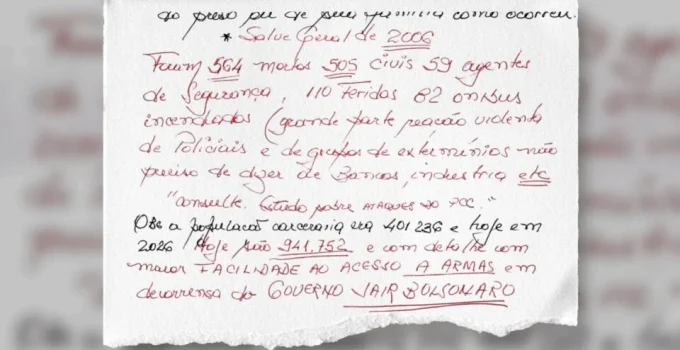 do preso ou de sua família como ocorreu.
* Salve Geral de 2006
Foram 564 mortos 505 civis 59 agentes
de Segurança, 110 Feridos 82 onibus
incendiados (grande parte reação violenta
de Policiais e de grupos de extermínios não
preciso de dizer de Bancos, industria etc
"consulte. Estudo sobre ATAQUES DO PCC."
Obs a população carceraria era 401236 e hoje em
2026 Hoje são 941.752 e com detalhe com
maior FACILIDADE AO ACESSO A ARMAS em
decorrensa do GOVERNO JAIR BOLSONARO